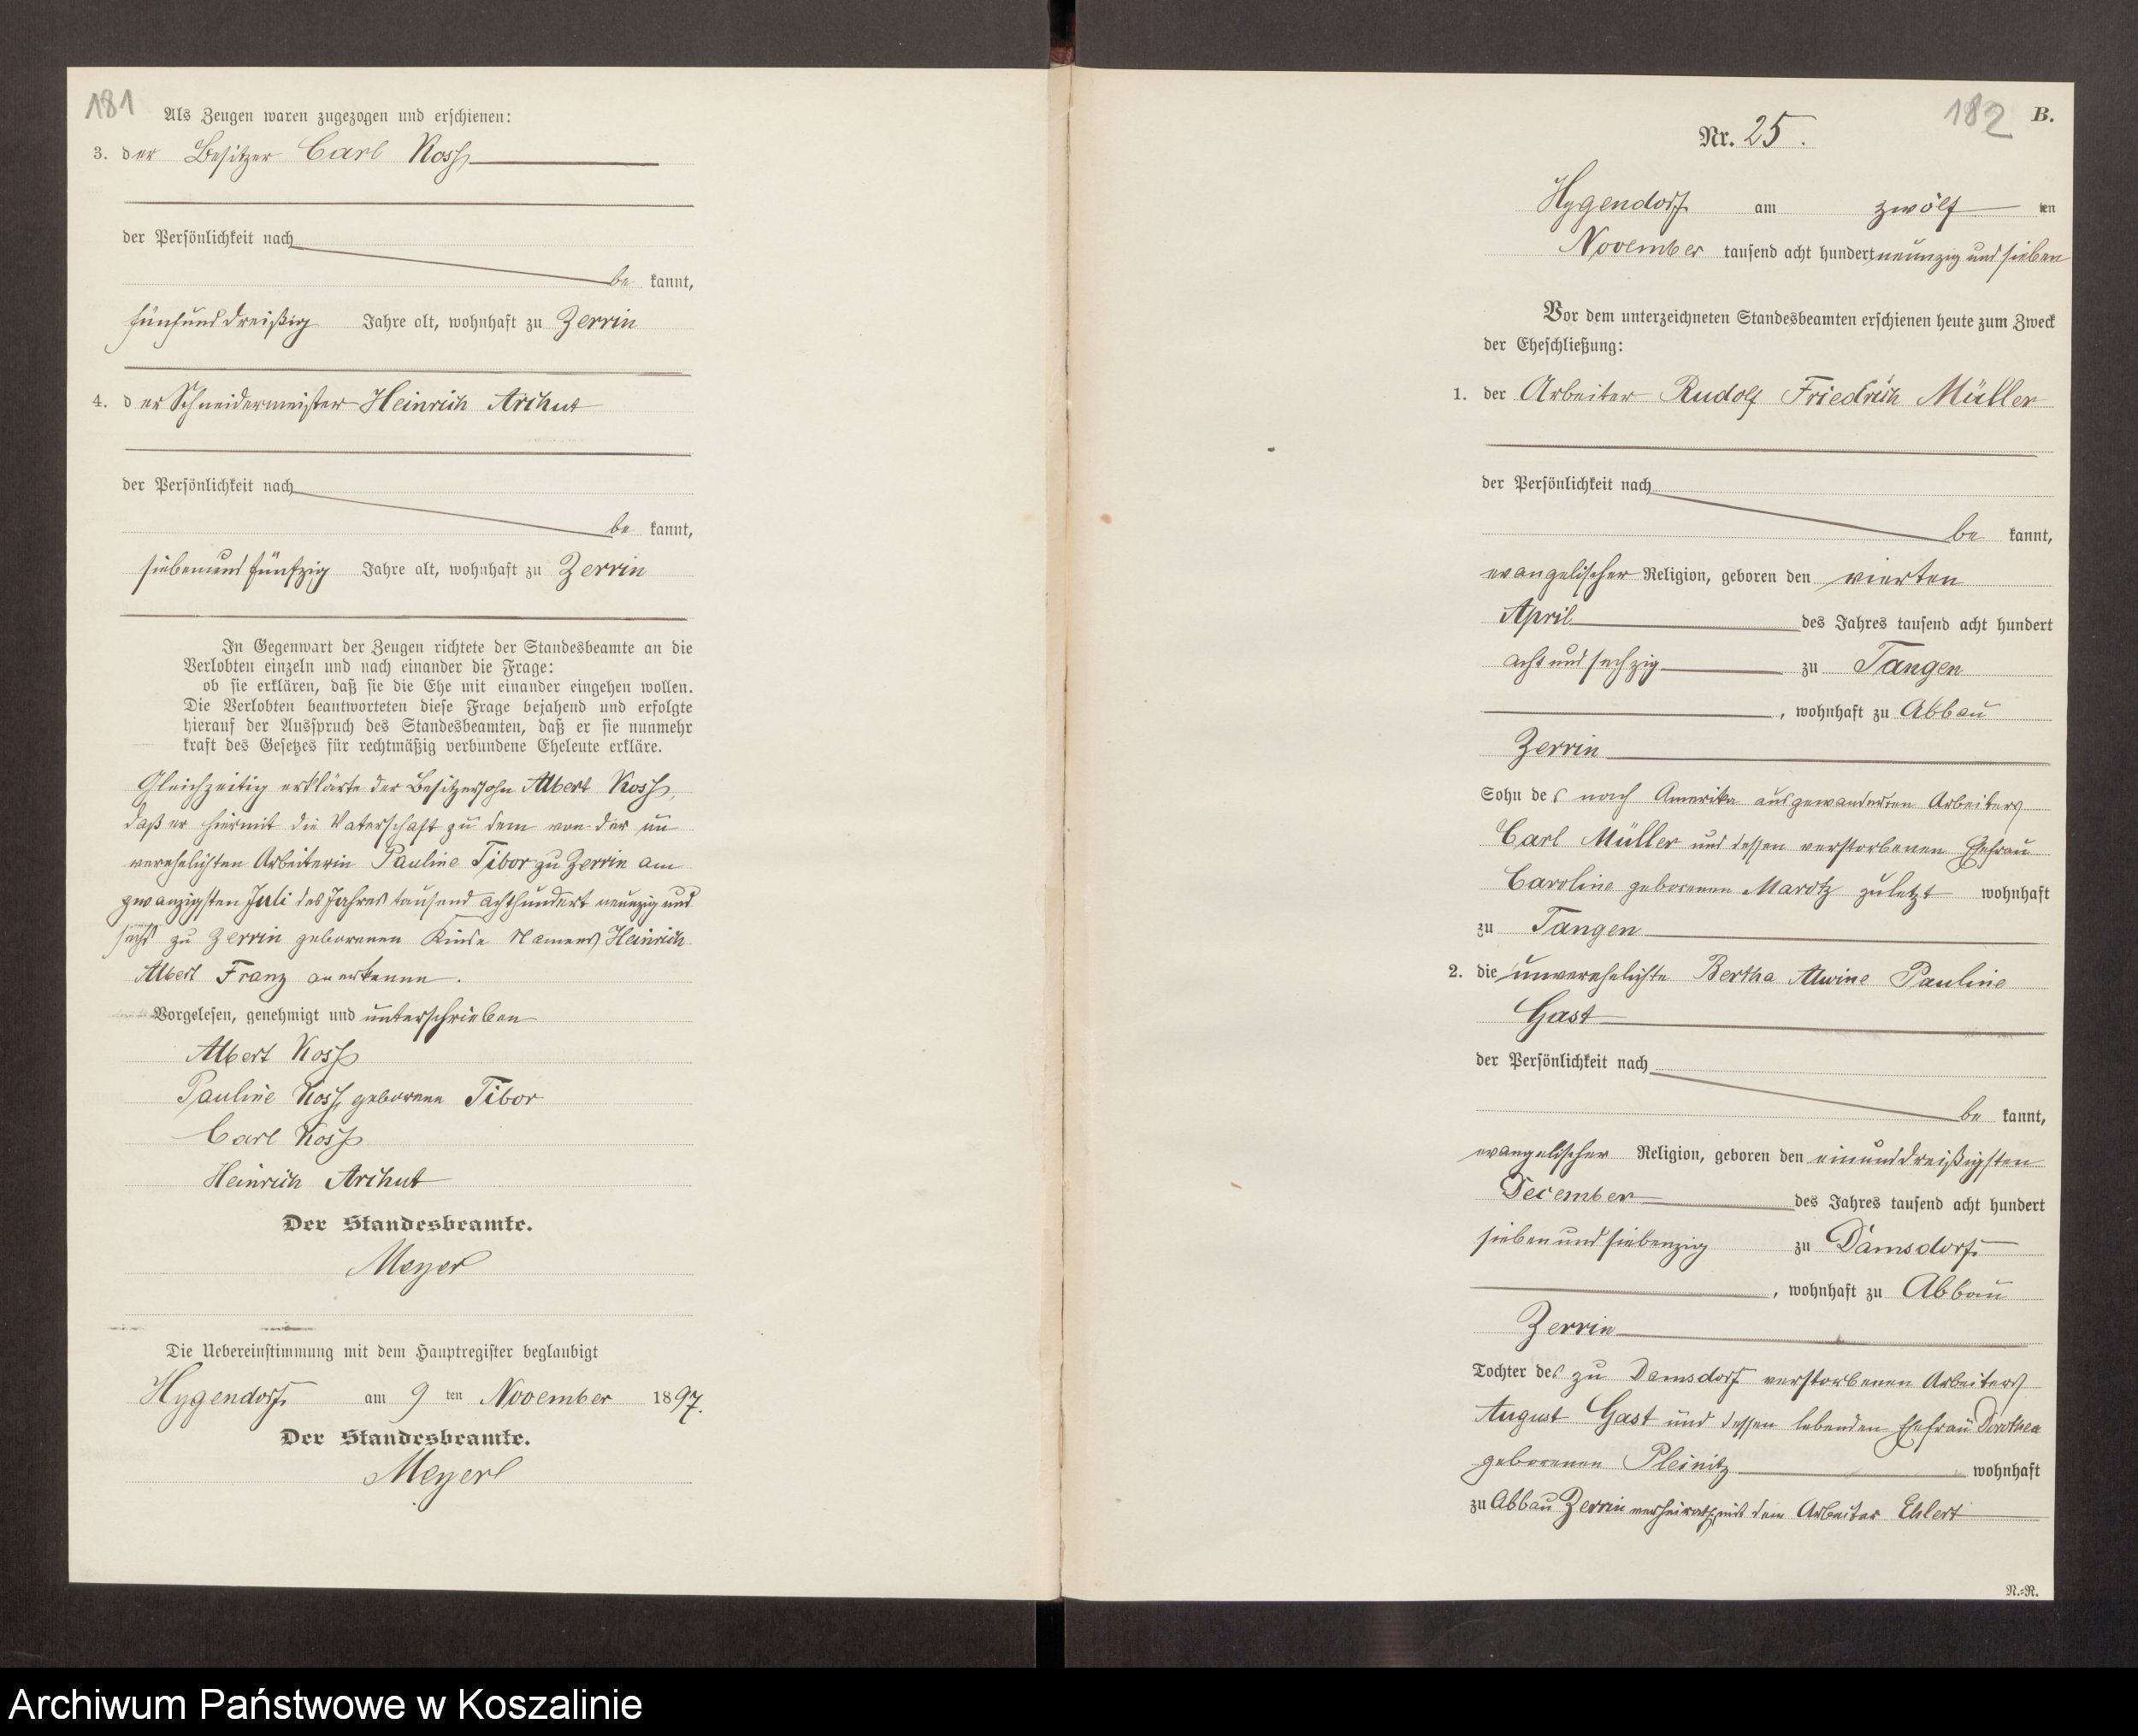 181
Als Zeugen waren zugezogen und erschienen:
3. der Besitzer Carl Koss
der Persönlichkeit nach
be kannt,
fünfunddreißig Jahre alt, wohnhaft zu Zerrin
4. der Schneidermeister Heinrich Archut
der Persönlichkeit nach
be kannt,
siebenundfünfzig Jahre alt, wohnhaft zu Zerrin
In Gegenwart der Zeugen richtete der Standesbeamte an die
Verlobten einzeln und nach einander die Frage:
ob sie erklären, daß sie die Ehe mit einander eingehen wollen.
Die Verlobten beantworteten diese Frage bejahend und erfolgte
hierauf der Ausspruch des Standesbeamten, daß er sie nunmehr
kraft des Gesetzes für rechtmäßig verbundene Eheleute erkläre.
Gleichzeitig erklärte der Besitzersohn Albert Koss,
daß er hiermit die Vaterschaft zu dem von der un
verehelichten Arbeiterin Pauline Tibor zu Zerrin am
zwanzigsten Juli des Jahres tausend achthundert neunzig und
sechs zu Zerrin geborenen Kinde Namens Heinrich
Albert Franz anerkenne.
Vorgelesen, genehmigt und unterschrieben
Albert Koss
Pauline Koss, geborene Tibor
Carl Koss
Heinrich Archut
Der Standesbeamte.
Meyer
Die Uebereinstimmung mit dem Hauptregister beglaubigt
Hygendorf am 9 ten November 1897.
Der Standesbeamte.
Meyer
182 B.
Nr. 25.
Hygendorf am zwölf ten
November tausend acht hundert neunzig und sieben
Vor dem unterzeichneten Standesbeamten erschienen heute zum Zweck
der Eheschließung:
1. der Arbeiter Rudolf Friedrich Müller
der Persönlichkeit nach
be kannt,
evangelischer Religion, geboren den vierten
April des Jahres tausend acht hundert
acht und sechzig zu Tangen
, wohnhaft zu Abbau
Zerrin
Sohn des nach Amerika ausgewanderten Arbeiters
Carl Müller und dessen verstorbenen Ehefrau
Caroline geborenen Marotz zuletzt wohnhaft
zu Tangen
2. die unverehelichte Bertha Alwine Pauline
Gast
der Persönlichkeit nach
be kannt,
evangelischer Religion, geboren den einunddreißigsten
December des Jahres tausend acht hundert
sieben und siebenzig zu Damsdorf
, wohnhaft zu Abbau
Zerrin
Tochter des zu Damsdorf verstorbenen Arbeiters
August Gast und dessen lebenden Ehefrau Dorothea
geborenen Pleinitz wohnhaft
zu Abbau Zerrin mit dem Arbeiter Ehlert
N.=R.
Archiwum Państwowe w Koszalinie